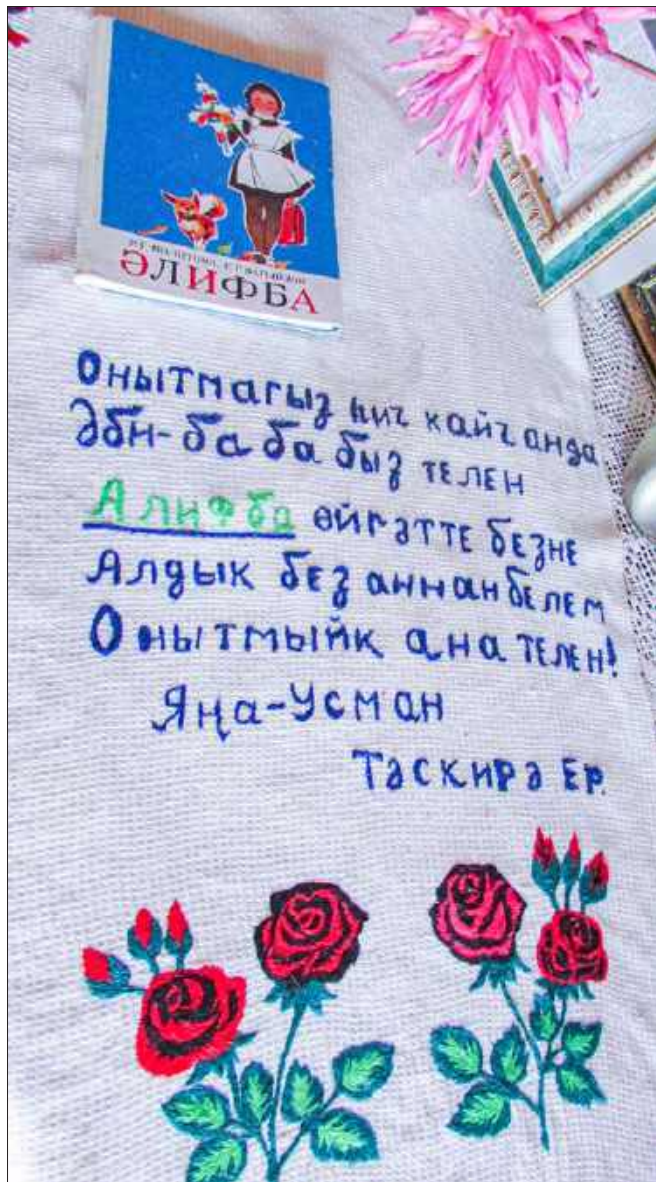 ӘЛИФБА
Онытмагыз һич кайчанда
Әби-бабабыз телен
Алифба өйрәтте безне
Алдык без аннан белем
Онытмыйк ана телен!
Яңа-Усман
Тәскирә Ер.